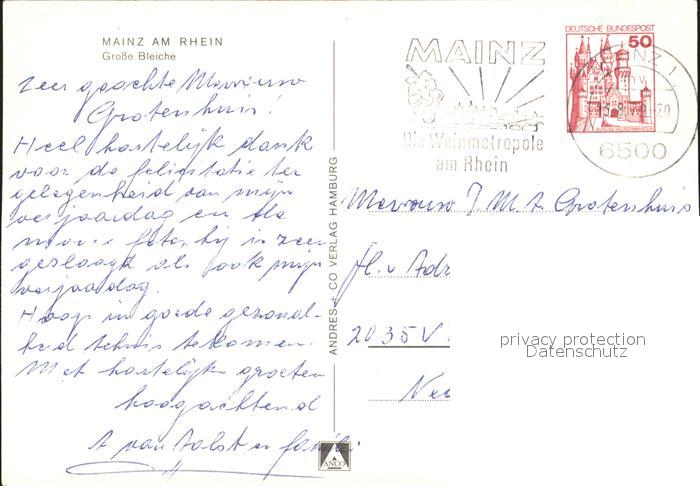 MAINZ AM RHEIN
Große Bleiche
Zeer geachte Mevrouw
Grotenhuis!
Heel hartelijk dank
voor de felicitatie ter
gelegenheid van mijn
verjaardag en de
mooie foto, hij is zeer
geslaagd als ook mijn
verjaardag.
Hoop in goede gezond-
heid te
Met hartelijke groeten
hoogachtend
A van Aalst en familie
ANDRES + CO VERLAG HAMBURG
ANCO
MAINZ
Die Weinmetropole
am Rhein
DEUTSCHE BUNDESPOST
50
SCHLOSS NEUSCHWANSTEIN
MAINZ 1
6500
Mevrouw J. M. A. Grotenhuis
fl. v Adr
2035 V
Ne
privacy protection
Datenschutz